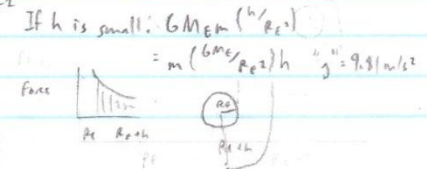 If h is small: GMEm (h/RE²)
= m (GME/RE²) h "g" = 9.81 m/s²
Force
RE
RE RE+h
RE+h